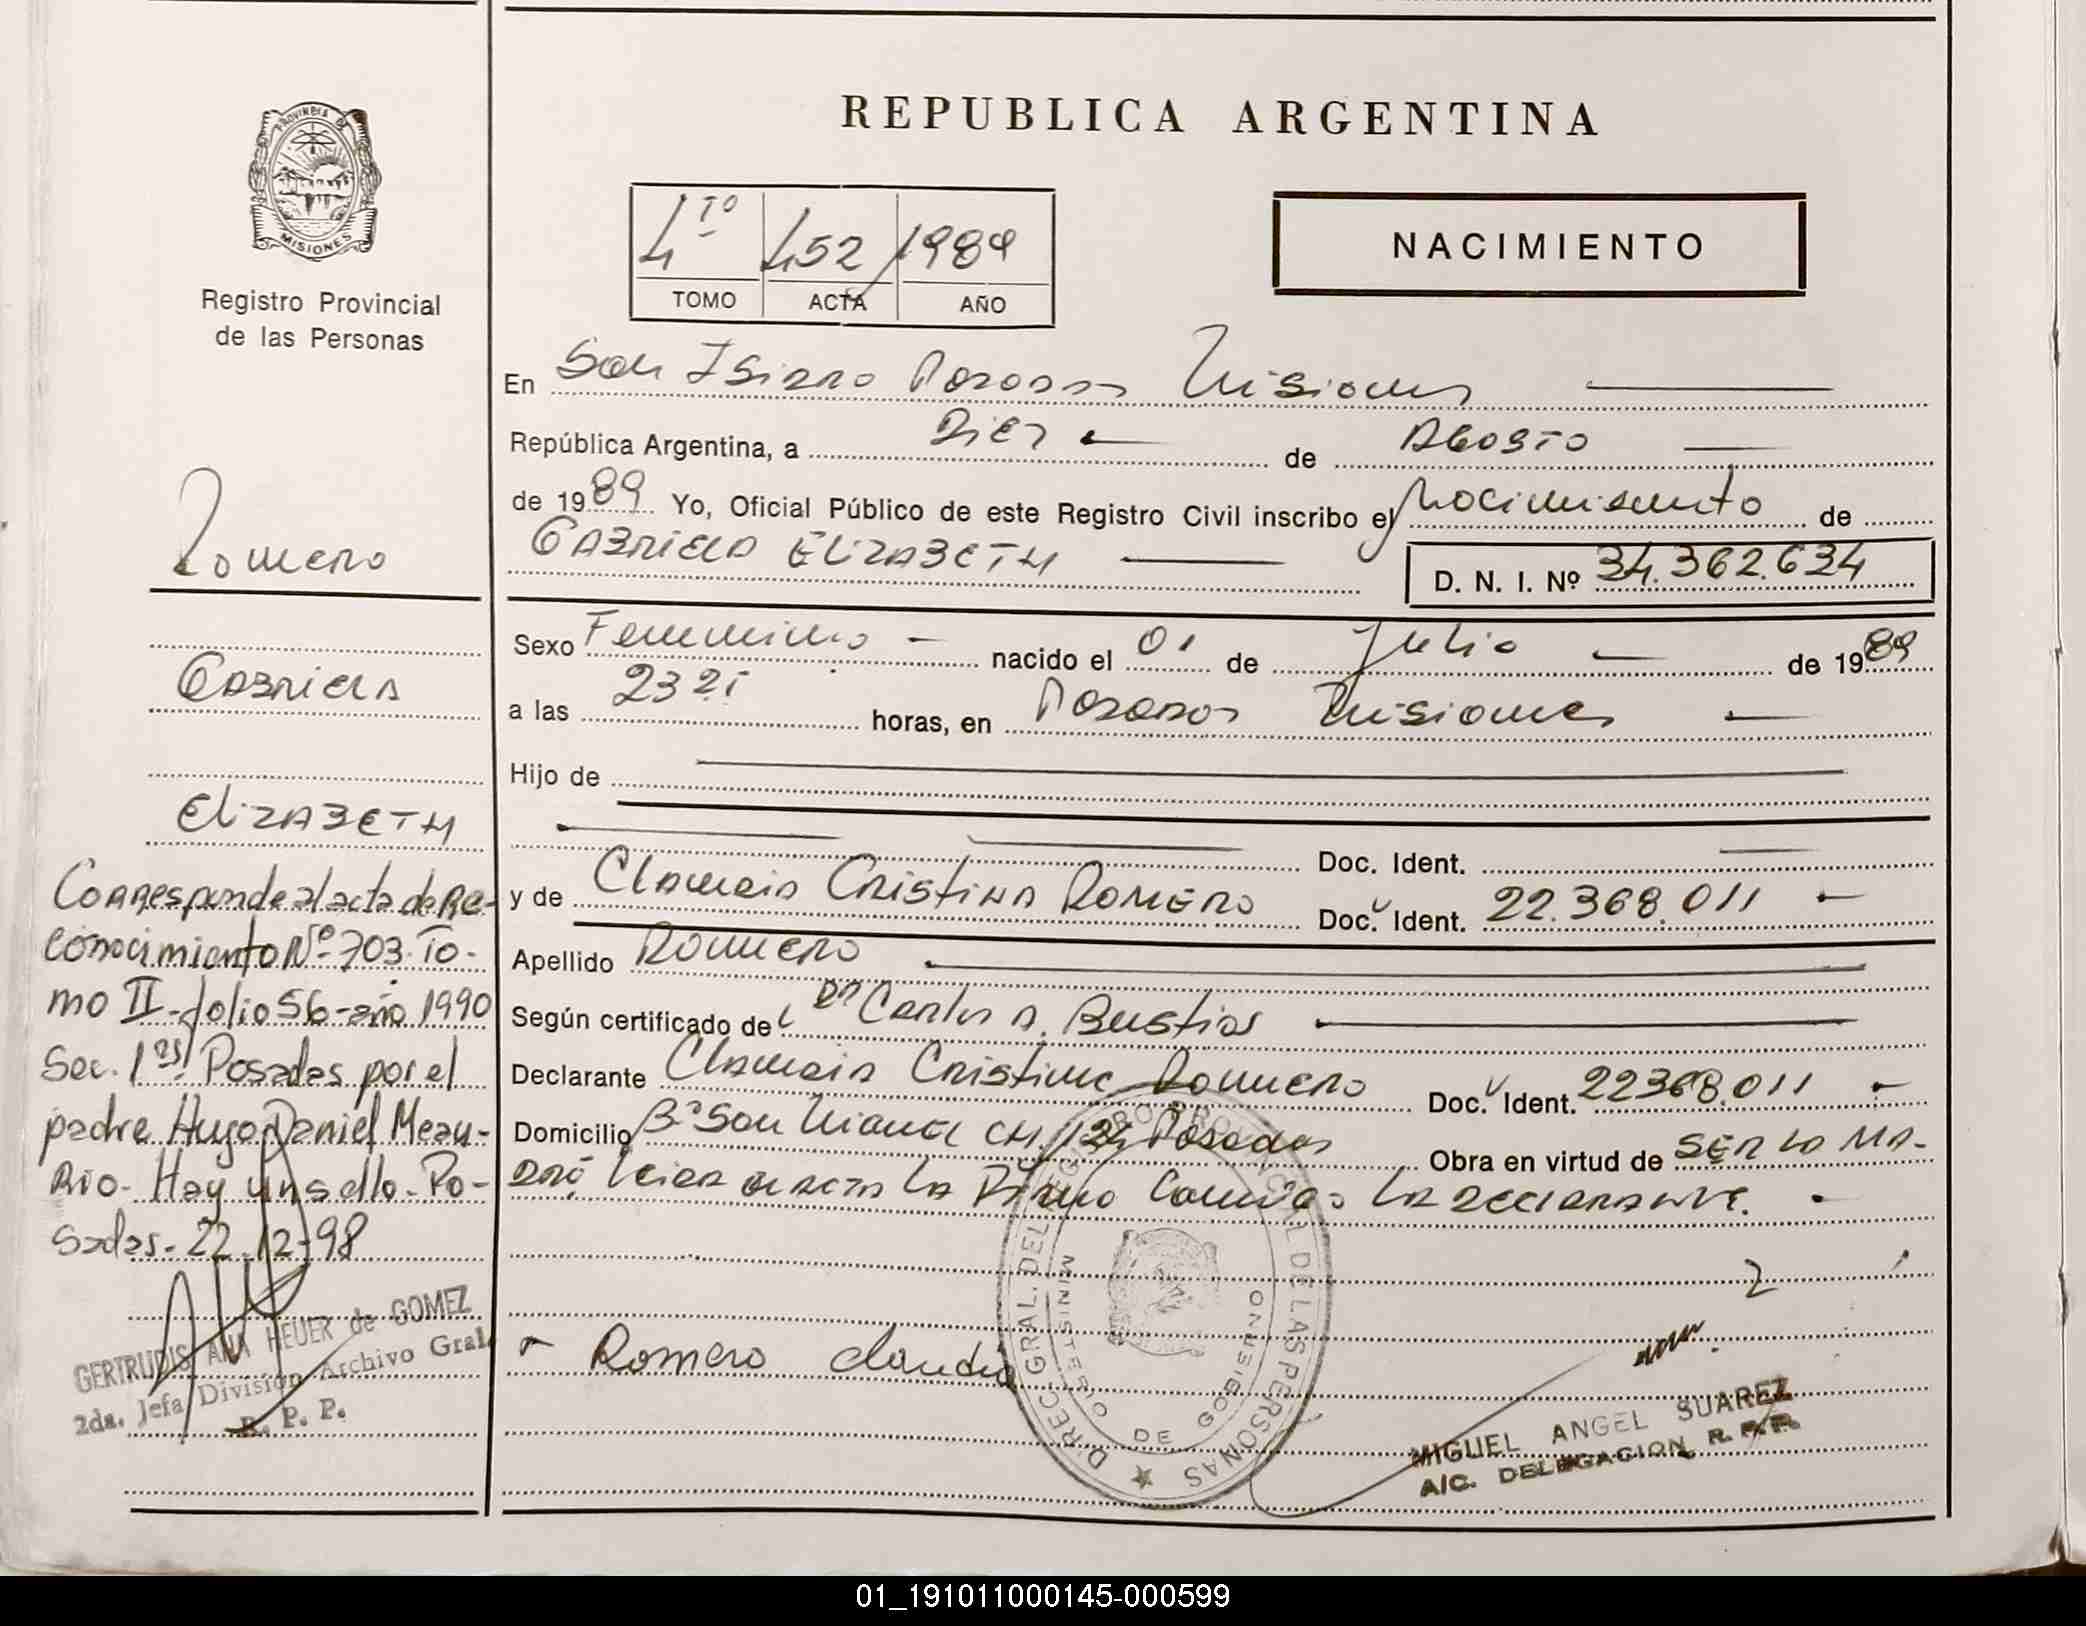 PROVINCIA DE
MISIONES
Registro Provincial
de las Personas
Romero
Gabriela
Elizabeth
Corresponde al acta de Re-
conocimiento Nº 703. To-
mo II - folio 56 - año 1990
Sec. 1ra. Posadas por el
padre Hugo Daniel Meau-
Rio. Hay un sello. Po-
sadas. 22-12-98
GERTRUDIS ANA HEUER de GOMEZ
2da. Jefa División Archivo Gral.
R. P. P.
REPUBLICA ARGENTINA
4to 452 1989
TOMO ACTA AÑO
NACIMIENTO
En San Isidro Posadas Misiones
República Argentina, a Diez de Agosto
de 1989 Yo, Oficial Público de este Registro Civil inscribo el Nacimiento de
Gabriela Elizabeth D. N. I. Nº 34.362.634
Sexo Femenino nacido el 01 de Julio de 1989
a las horas, en Posadas Misiones
Hijo de
Doc. Ident.
y de Claudia Cristina Romero Doc. Ident. 22.368.011
Apellido Romero
Según certificado de Dr Carlos A. Bustos
Declarante Claudia Cristina Romero Doc. Ident. 22368.011
Domicilio Bº San Miguel CH. 124 Posadas Obra en virtud de ser la ma-
dre, Leida el acta la Firma Conmigo la declarante.
Romero Claudia
DIREC. GRAL. DEL REGISTRO PROVINCIAL DE LAS PERSONAS
MINISTERIO DE GOBIERNO
MIGUEL ANGEL SUAREZ
A/C. DELEGACION R. P. P.
01_191011000145-000599